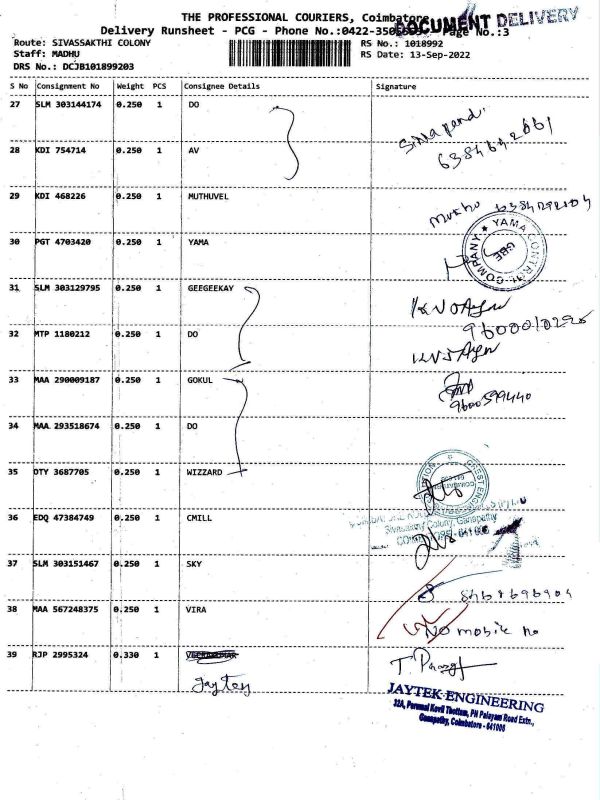 THE PROFESSIONAL COURIERS, Coimbatore
DOCUMENT DELIVERY
Delivery Runsheet - PCG - Phone No.:0422-350 Page No.:3
Route: SIVASSAKTHI COLONY RS No.: 1018992
Staff: MADHU RS Date: 13-Sep-2022
DRS No.: DCJB101899203
S No Consignment No Weight PCS Consignee Details Signature
27 SLM 303144174 0.250 1 DO
6384642661
28 KDI 754714 0.250 1 AV
29 KDI 468226 0.250 1 MUTHUVEL
30 PGT 4703420 0.250 1 YAMA
YAMA CONTROL COMPANY
CBE
31 SLM 303129795 0.250 1 GEEGEEKAY
9600010296
32 MTP 1180212 0.250 1 DO
33 MAA 290009187 0.250 1 GOKUL
9600599440
34 MAA 293518674 0.250 1 DO
35 DTY 3687705 0.250 1 WIZZARD
36 EDQ 47384749 0.250 1 CMILL
Sivasakthy Colony, Ganapathy
COIMBATORE - 641 006
37 SLM 303151467 0.250 1 SKY
38 MAA 567248375 0.250 1 VIRA
No mobile no
39 RJP 2995324 0.330 1
Jaytey
JAYTEK ENGINEERING
32A, Perumal Kovil Thottam, PN Palayam Road Extn.,
Ganapathy, Coimbatore - 641006